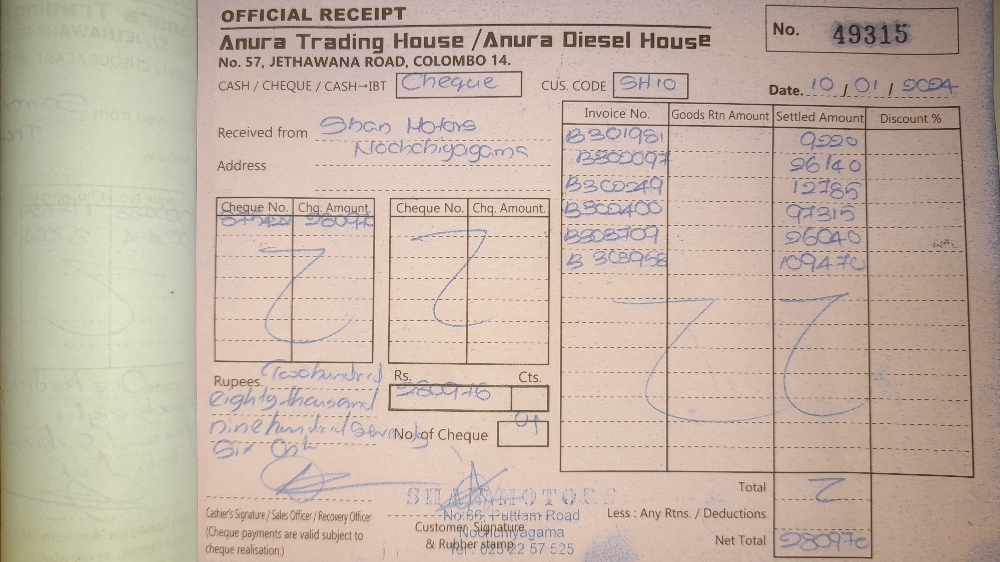 OFFICIAL RECEIPT
Anura Trading House /Anura Diesel House
No. 57, JETHAWANA ROAD, COLOMBO 14.
No. 49315
CASH / CHEQUE / CASH→IBT Cheque CUS. CODE SH10 Date. 10 / 01 / 2024
Received from Shan Motors
Address Nochchiyagama
Invoice No. Goods Rtn Amount Settled Amount Discount %
B301981 9220
B302097 26140
B302249 12785
B302400 97315
B303709 26040
B 303958 109476
Cheque No. Chq. Amount. Cheque No. Chq. Amount.
280976
Rupees. Two hundred
eighty thousand
nine hundred seventy
Six Only
Rs. Cts.
280976
No. of Cheque 01
Total
Less : Any Rtns. / Deductions
Net Total 280976
Cashier's Signature / Sales Officer / Recovery Officer
(Cheque payments are valid subject to
cheque realisation.)
Customer Signature
& Rubber stamp
SHAN MOTORS
No:66, Puttlam Road
Nochchiyagama
Tel : 025 22 57 525